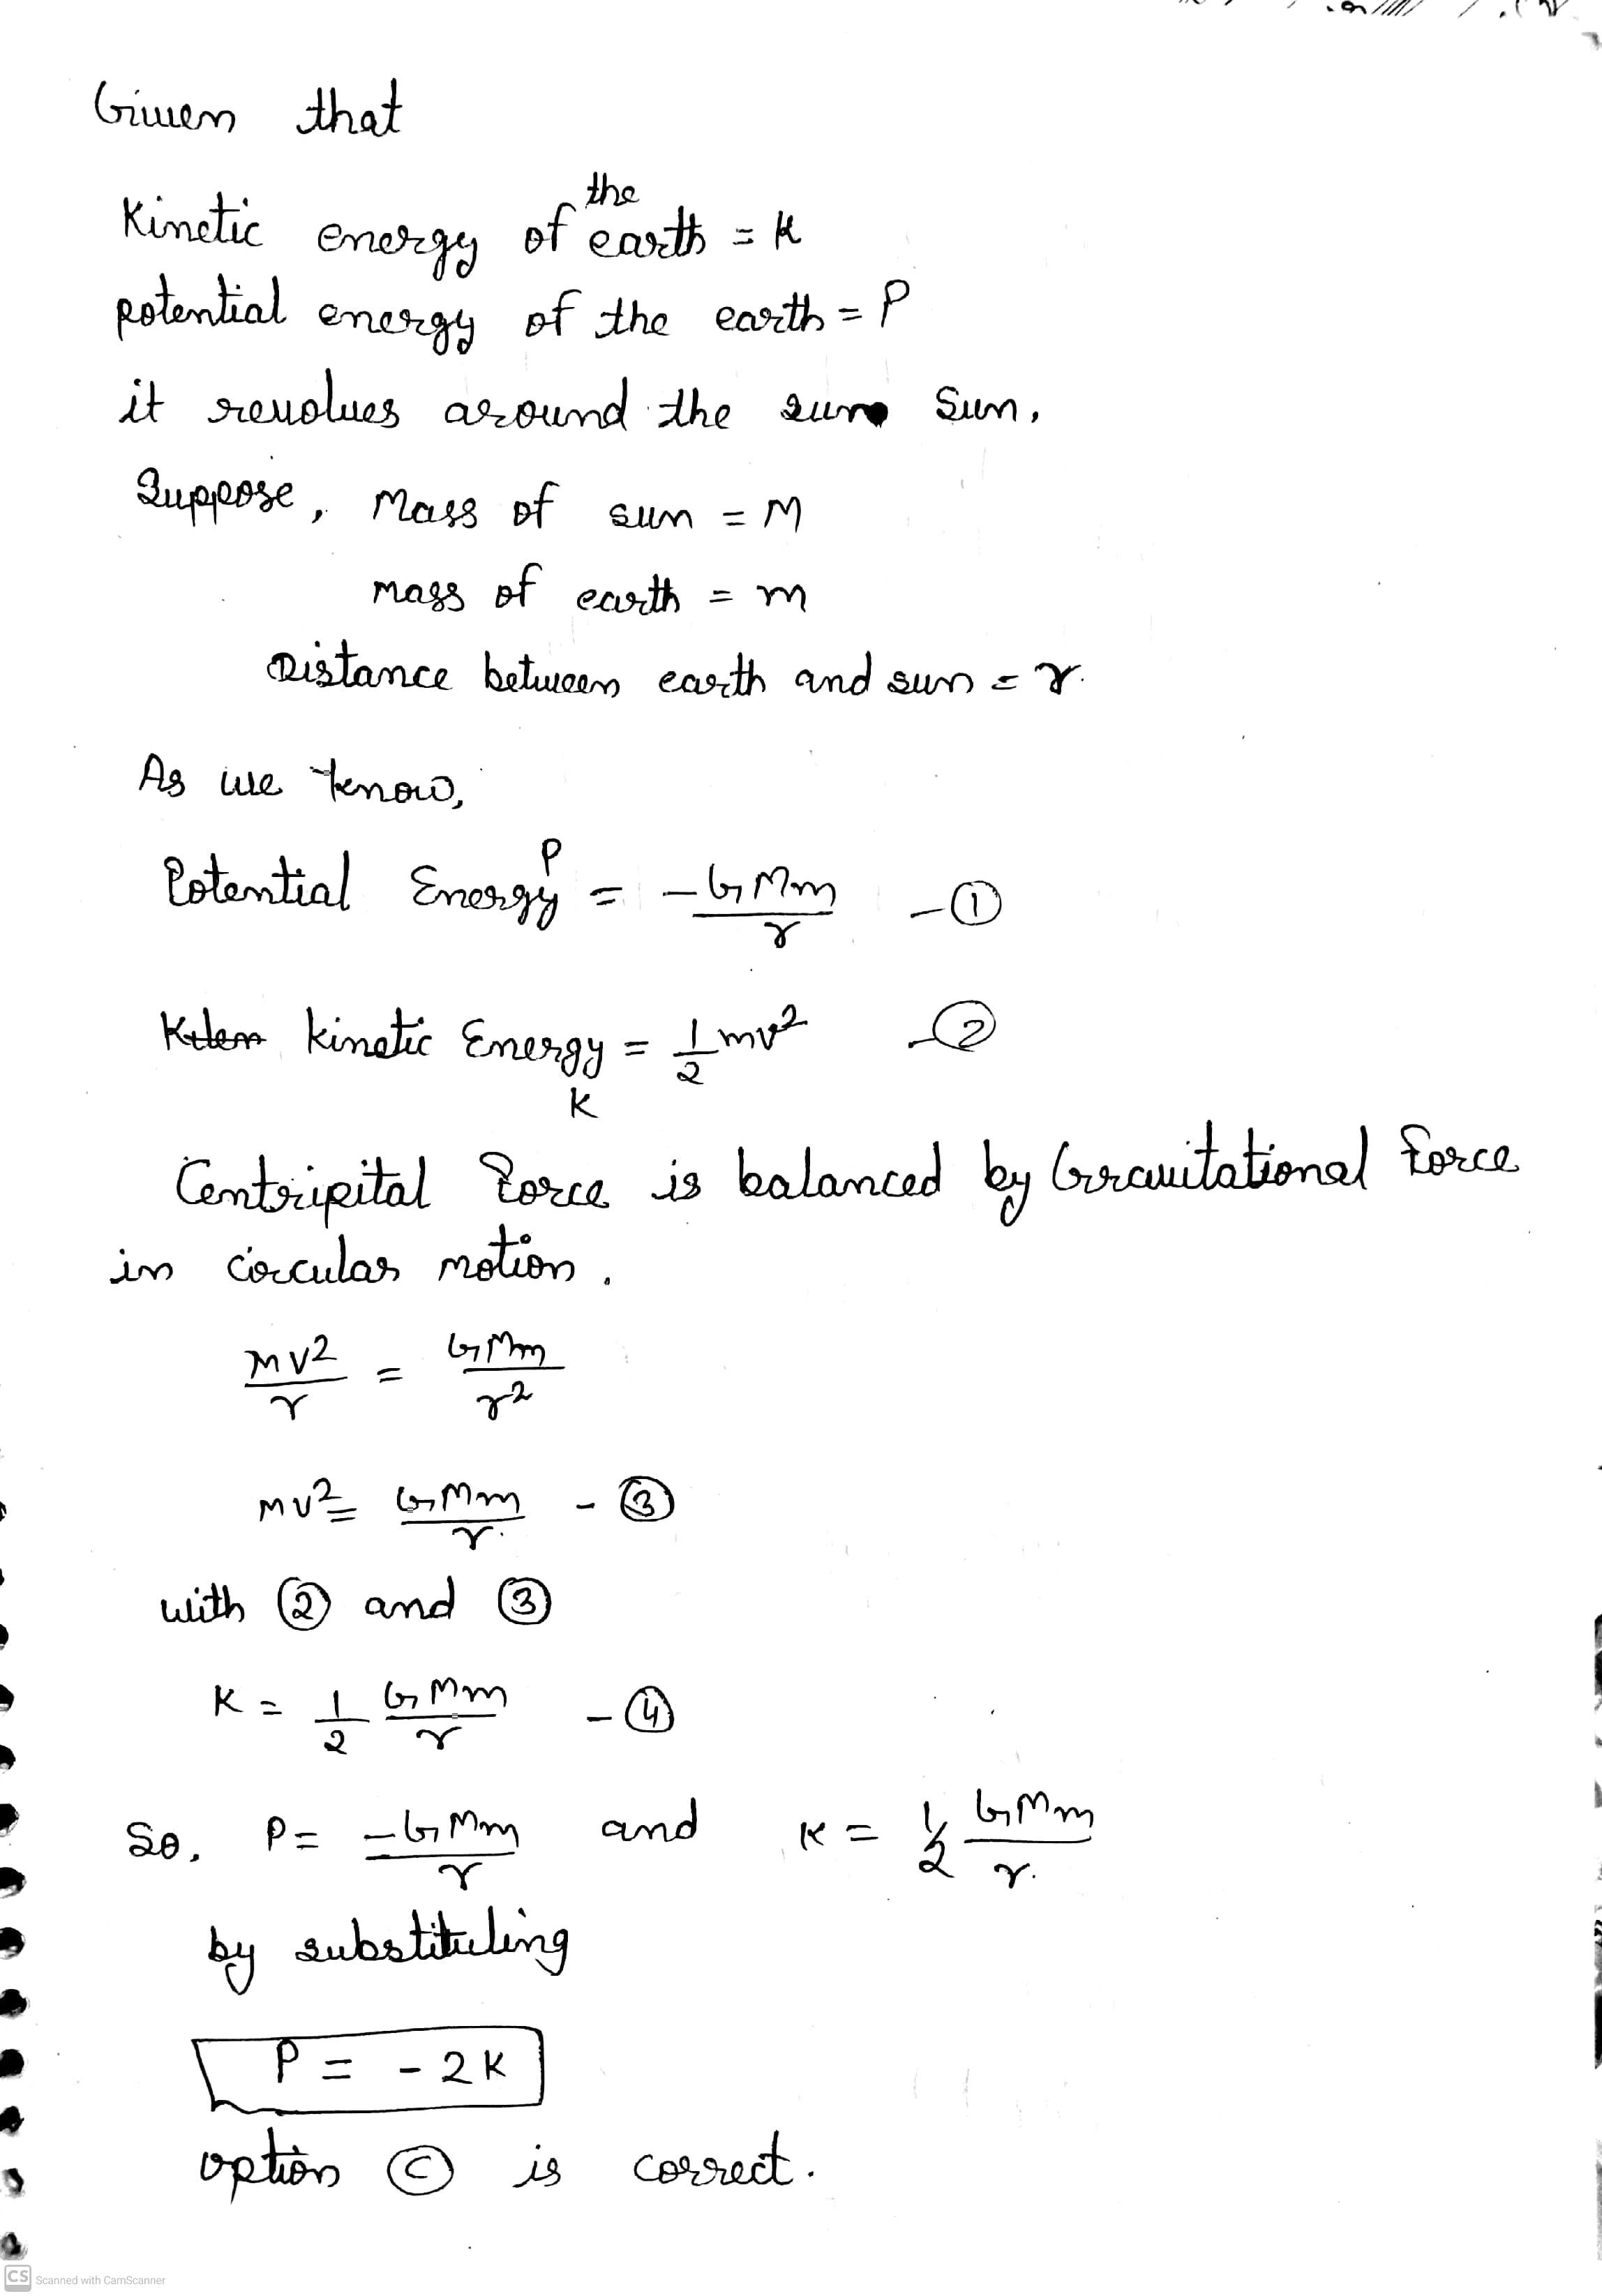 Given that
Kinetic energy of the earth = K
potential energy of the earth = P
it revolves around the sun Sun,
Suppose, Mass of sun = M
mass of earth = m
Distance between earth and sun = r.
As we know,
Potential Energy P = -GMm/r -①
kinetic Energy K = 1/2 mv² -②
Centripital Force is balanced by Gravitational Force
in circular motion.
mv²/r = GMm/r²
mv² = GMm/r. -③
with ② and ③
K = 1/2 GMm/r -④
So, P = -GMm/r and K = 1/2 GMm/r.
by substituting
P = -2K
option Ⓒ is correct.
CS Scanned with CamScanner